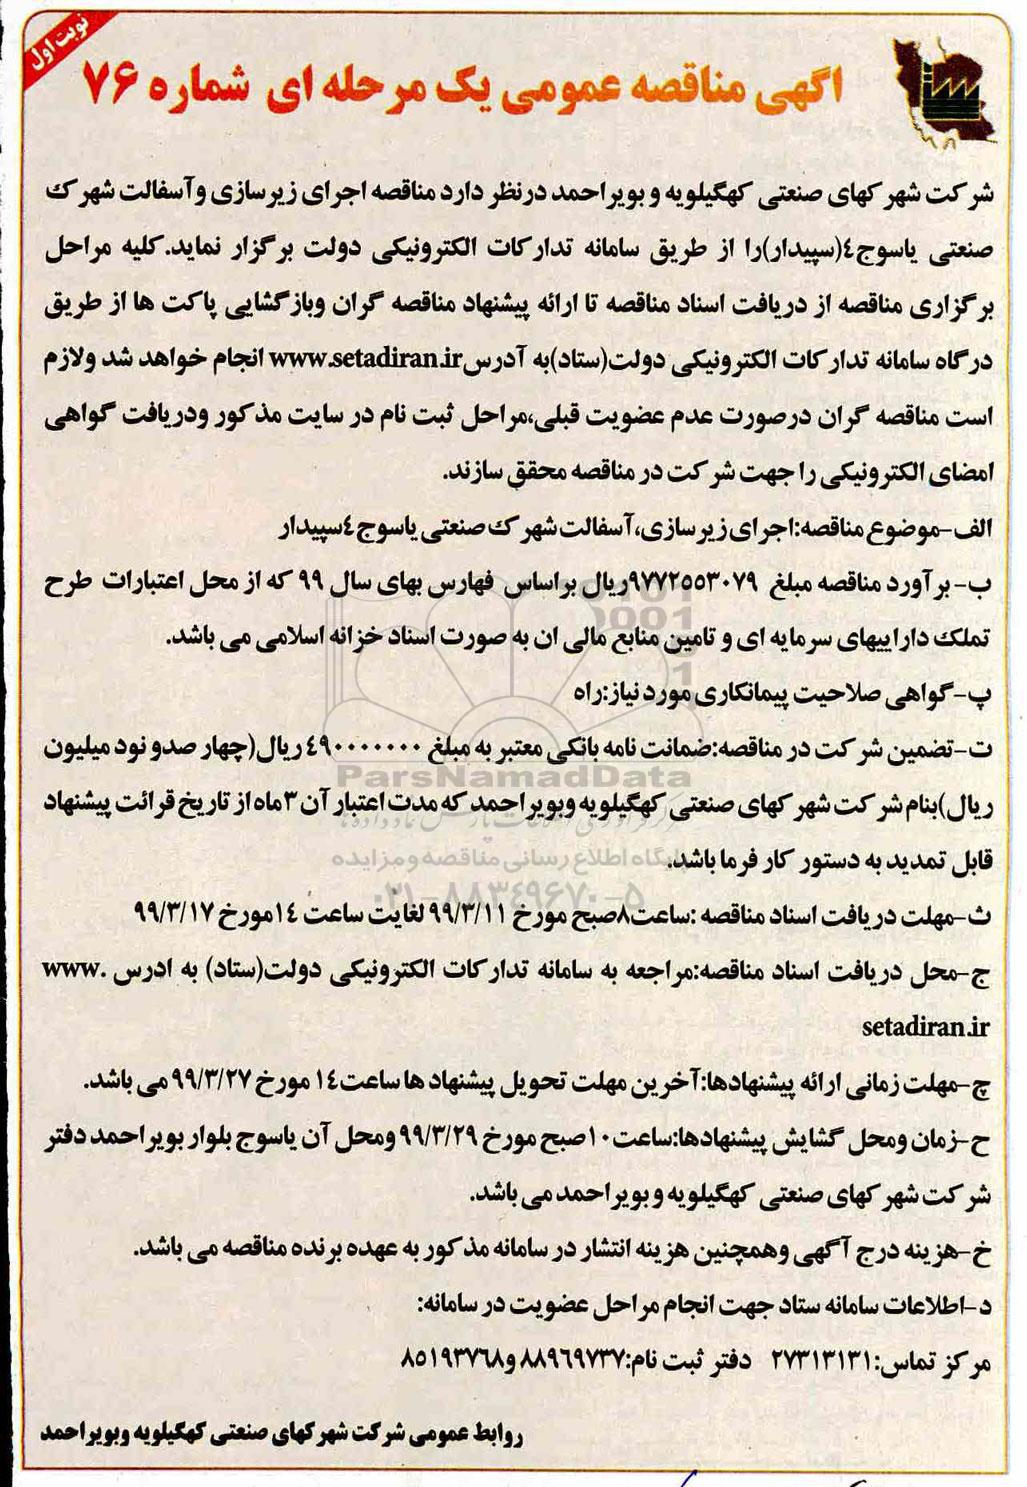 نوبت اول
اگهی مناقصه عمومی یک مرحله ای شماره ۷۶
شرکت شهرکهای صنعتی کهگیلویه و بویراحمد درنظر دارد مناقصه اجرای زیرسازی وآسفالت شهرک
صنعتی یاسوج٤(سپیدار)را از طریق سامانه تدارکات الکترونیکی دولت برگزار نماید.کلیه مراحل
برگزاری مناقصه از دریافت اسناد مناقصه تا ارائه پیشنهاد مناقصه گران وبازگشایی پاکت ها از طریق
درگاه سامانه تدارکات الکترونیکی دولت(ستاد)به آدرسwww.setadiran.ir انجام خواهد شد ولازم
است مناقصه گران درصورت عدم عضویت قبلی،مراحل ثبت نام در سایت مذکور ودریافت گواهی
امضای الکترونیکی را جهت شرکت در مناقصه محقق سازند.
الف-موضوع مناقصه:اجرای زیرسازی،آسفالت شهرک صنعتی یاسوج٤سپیدار
ب- برآورد مناقصه مبلغ ۹۷۷۲۵۵۳۰۷۹ریال براساس فهارس بهای سال ۹۹ که از محل اعتبارات طرح
تملک داراییهای سرمایه ای و تامین منابع مالی ان به صورت اسناد خزانه اسلامی می باشد.
پ-گواهی صلاحیت پیمانکاری مورد نیاز:راه
ت-تضمین شرکت در مناقصه:ضمانت نامه بانکی معتبر به مبلغ ٤۹۰۰۰۰۰۰۰ ریال(چهار صدو نود میلیون
ریال)بنام شرکت شهرکهای صنعتی کهگیلویه وبویراحمد که مدت اعتبار آن ۳ماه از تاریخ قرائت پیشنهاد
قابل تمدید به دستور کار فرما باشد.
ث-مهلت دریافت اسناد مناقصه :ساعت۸صبح مورخ ۹۹/۳/۱۱ لغایت ساعت ۱٤مورخ ۹۹/۳/۱۷
ج-محل دریافت اسناد مناقصه:مراجعه به سامانه تدارکات الکترونیکی دولت(ستاد) به ادرس www.
setadiran.ir
چ-مهلت زمانی ارائه پیشنهادها:آخرین مهلت تحویل پیشنهاد ها ساعت۱٤ مورخ ۹۹/۳/۲۷ می باشد.
ح-زمان ومحل گشایش پیشنهادها:ساعت۱۰صبح مورخ ۹۹/۳/۲۹ ومحل آن یاسوج بلوار بویراحمد دفتر
شرکت شهرکهای صنعتی کهگیلویه و بویراحمد می باشد.
خ-هزینه درج آگهی وهمچنین هزینه انتشار در سامانه مذکور به عهده برنده مناقصه می باشد.
د-اطلاعات سامانه ستاد جهت انجام مراحل عضویت در سامانه:
مرکز تماس:۲۷۳۱۳۱۳۱ دفتر ثبت نام:۸۸۹۶۹۷۳۷ و۸۵۱۹۳۷۶۸
روابط عمومی شرکت شهرکهای صنعتی کهگیلویه وبویراحمد
ParsNamadData
پایگاه اطلاع رسانی مناقصه و مزایده
۰۲۱-۸۸۳۴۹۶۷۰-۵